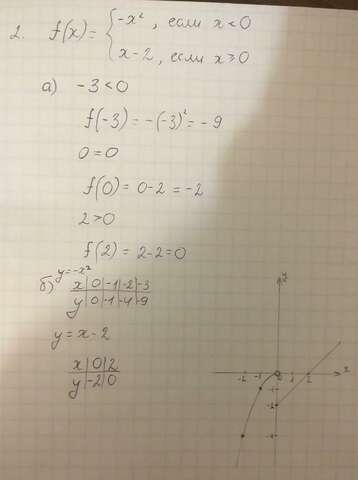 2. f(x) = { -x², если x < 0
x - 2, если x ≥ 0
а) -3 < 0
f(-3) = -(-3)² = -9
0 = 0
f(0) = 0-2 = -2
2 > 0
f(2) = 2-2 = 0
б) y = -x²
x | 0 | -1 | -2 | -3
y | 0 | -1 | -4 | -9
y = x - 2
x | 0 | 2
y | -2 | 0
y
-2 -1 0 1 2 x
-1
-2
-4